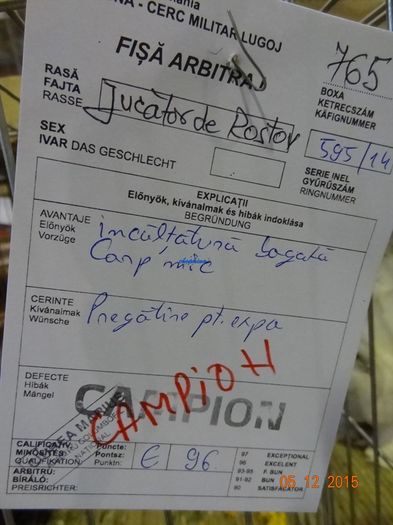 CERC MILITAR LUGOJ
FIȘĂ ARBITRAJ
765
RASĂ
FAJTA
RASSE
Jucător de Rostov
BOXA
KETRECSZÁM
KÄFIGNUMMER
SEX
IVAR DAS GESCHLECHT
595/14
SERIE INEL
GYŰRŰSZÁM
RINGNUMMER
EXPLICAȚII
Előnyök, kívánalmak és hibák indoklása
BEGRÜNDUNG
AVANTAJE
Előnyök
Vorzüge
incălțătură bogată
Corp mic
CERINTE
Kívánalmak
Wünsche
Pregătire pt. expo
DEFECTE
Hibák
Mängel
CAMPION
CAMPION
CALIFICATIV
MINŐSÍTÉS
QUALIFIKATION
Puncte:
Pontsz:
Punktn:
E 96
97 EXCEPTIONAL
96 EXCELENT
93-95 F. BUN
91- BUN
90 SATISFĂCĂTOR
ARBITRU:
BÍRÁLÓ:
PREISRICHTER:
05 12 2015